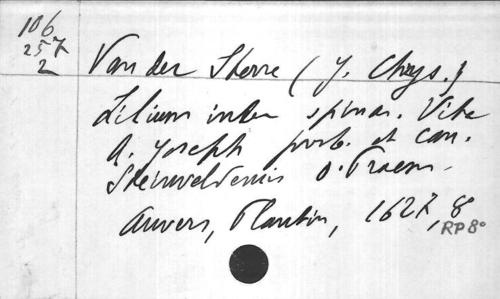 106
257
2
Van der Sterre (J. Chrys.)
Lilium inter spinas. Vita
B. Joseph presb. et can.
Steinveldensis o. Praem.
Anvers, Plantin, 1627, 8°
RP 8°